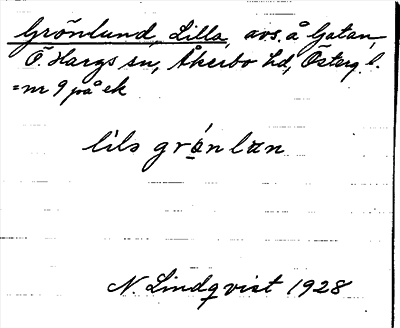 Grönlund, Lilla, avs. å Gatan,
Ö. Hargs sn, Åkerbo hd, Österg. l.
=nr 9 på ek
lils grǿnlan
N. Lindqvist 1928